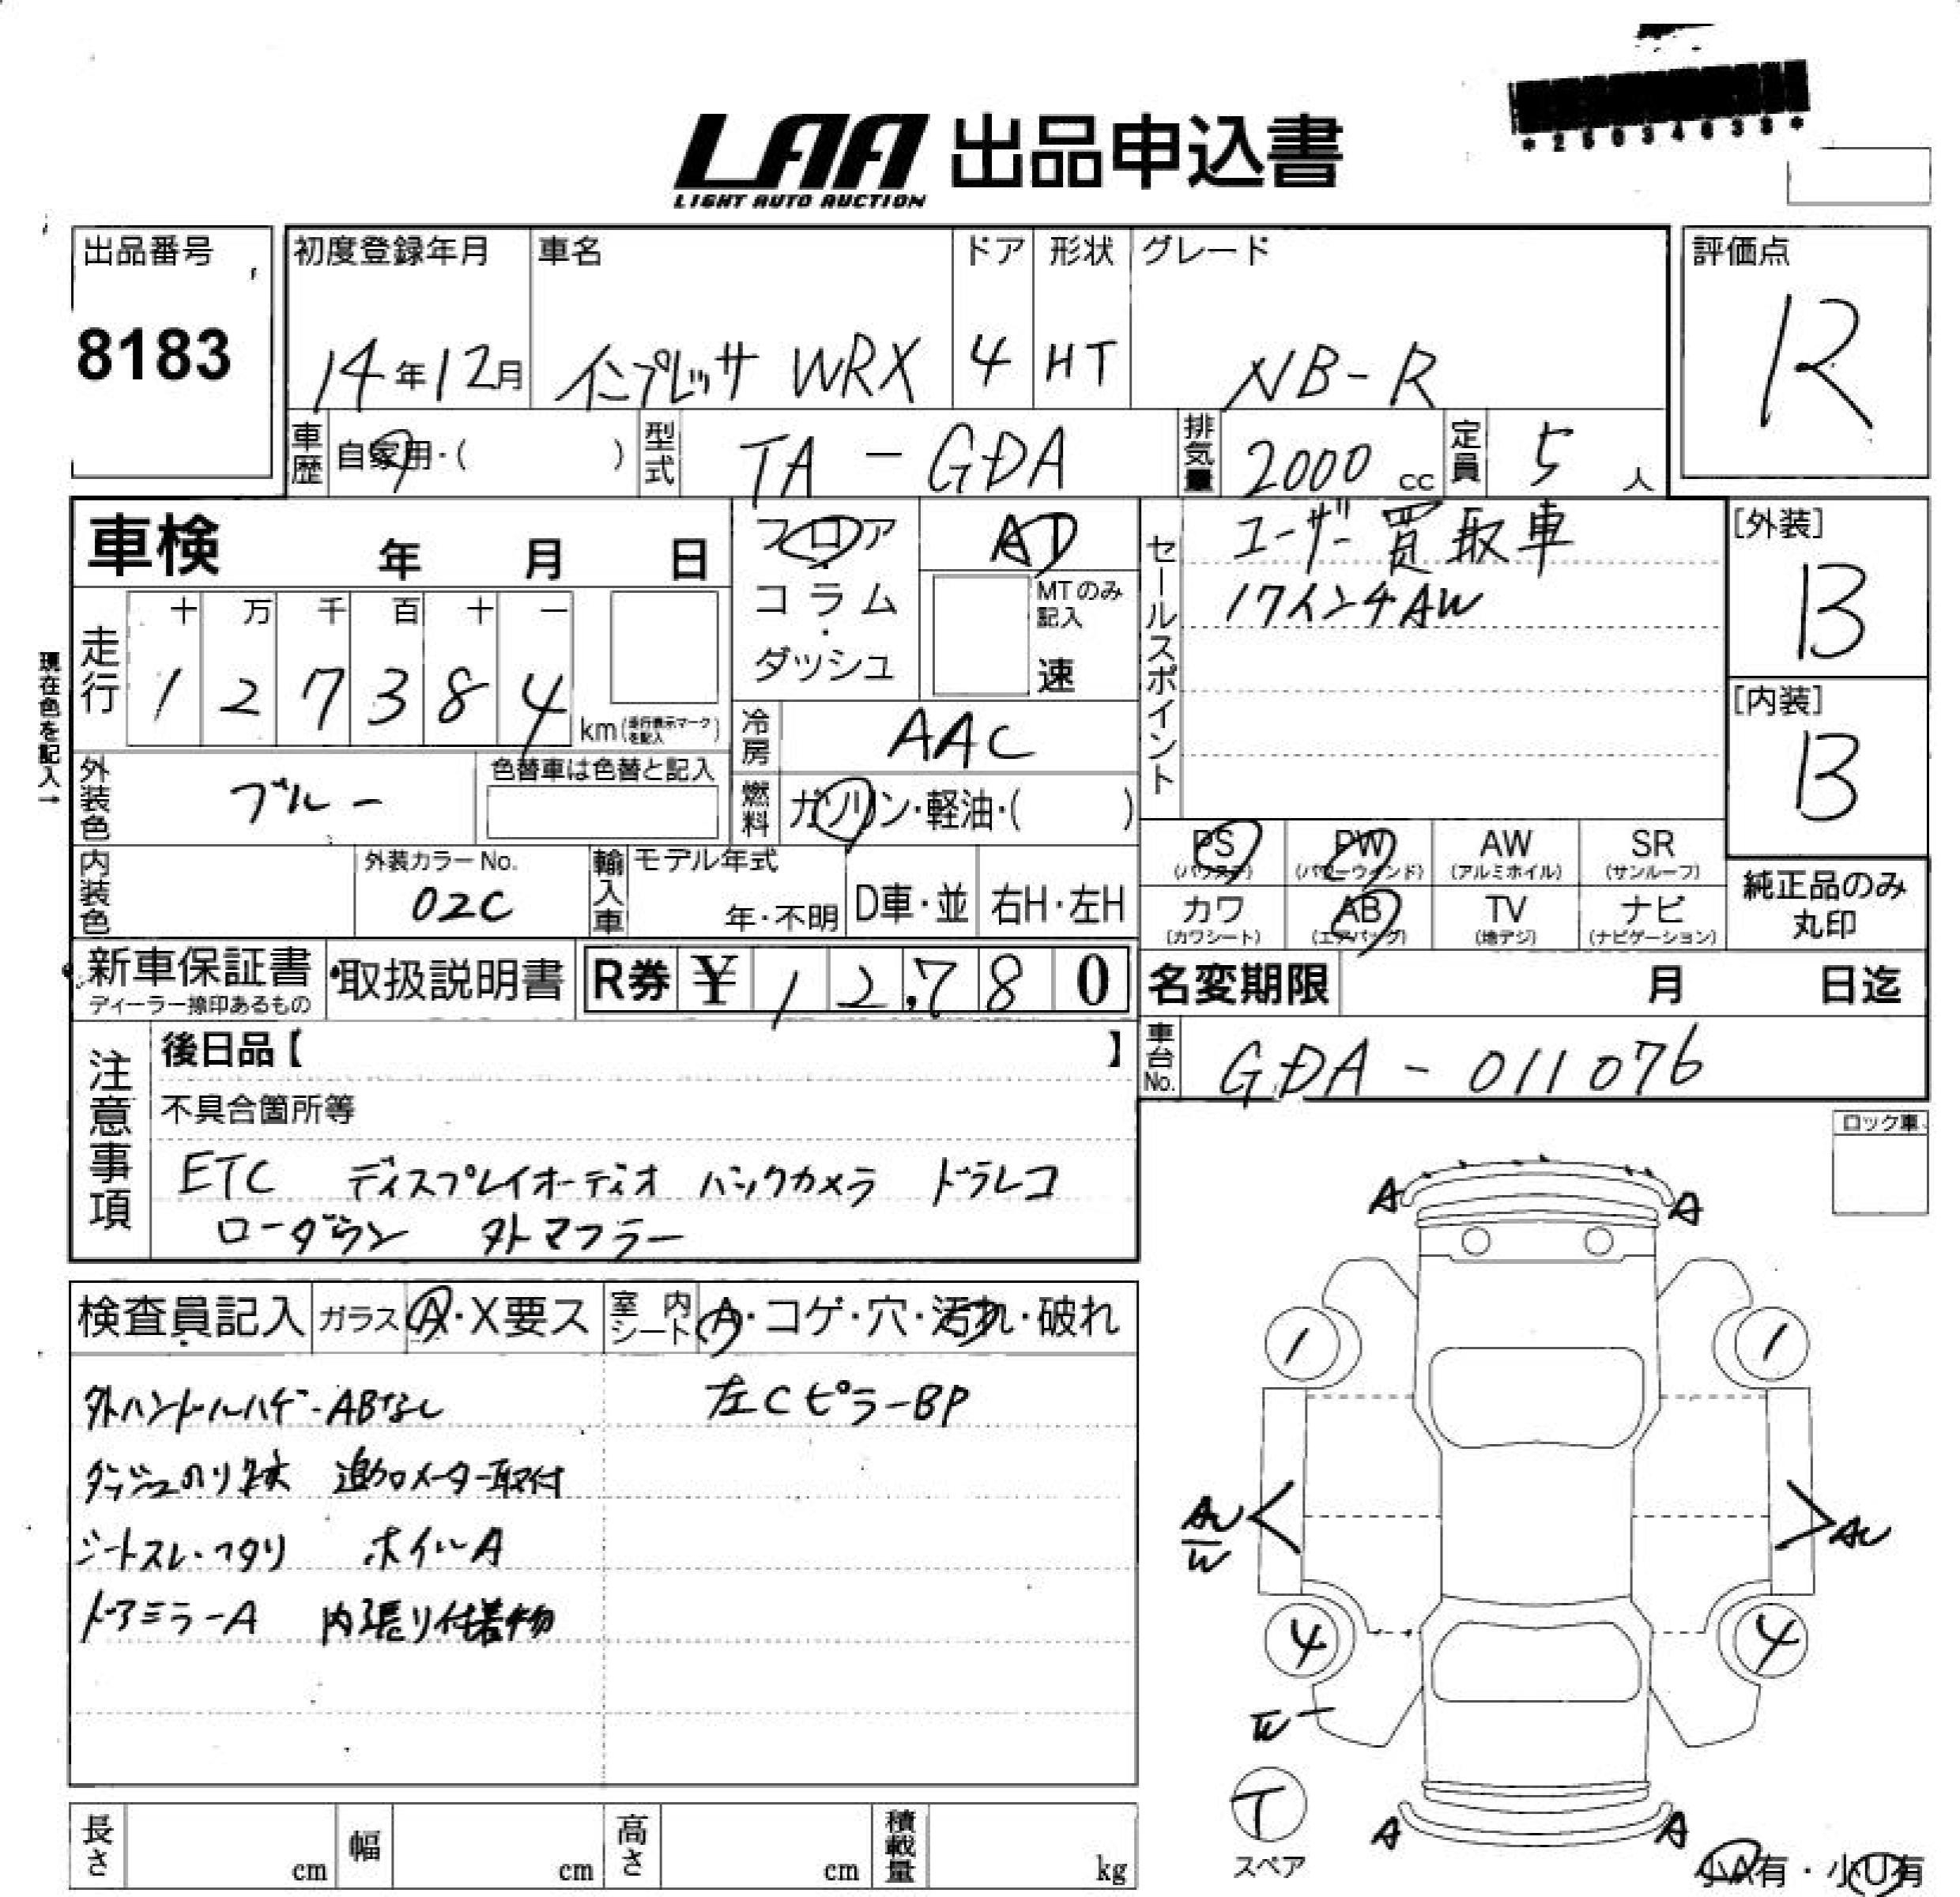 *25034639*
LAA 出品申込書
LIGHT AUTO AUCTION
出品番号
8183
初度登録年月 車名 ドア 形状 グレード
14年12月 インプレッサ WRX 4 HT NB-R
評価点
R
車歴 自家用・( ) 型式 TA-GDA 排気量 2000 cc 定員 5 人
車検 年 月 日
フロア
コラム・
ダッシュ
AT
MTのみ記入
速
セールスポイント
ユーザー買取車
17インチAW
[外装]
B
[内装]
B
現在色を記入→
走行 十 万 千 百 十 一
1 2 7 3 8 4 km(走行表示マークを記入)
冷房 AAC
外装色 ブルー 色替車は色替と記入
燃料 ガソリン・軽油・( )
内装色 外装カラーNo. 02C
輸入車 モデル年式 年・不明 D車・並 右H・左H
PS (パワステ) PW (パワーウインド) AW (アルミホイル) SR (サンルーフ)
カワ (カワシート) AB (エアバッグ) TV (地デジ) ナビ (ナビゲーション)
純正品のみ
丸印
新車保証書 ディーラー捺印あるもの
取扱説明書
R券 ¥ 12,780
名変期限 月 日迄
車台No. GDA-011076
注意事項
後日品【 】
不具合箇所等
ETC ディスプレイオーディオ バックカメラ ドラレコ
ローダウン 外マフラー
ロック車
検査員記入 ガラス A・X要ス 室内シート A・コゲ・穴・汚れ・破れ
外ハンドルハゲ・ABなし 左CピラーBP
ダッシュのり跡 追加メーター取付
シートスレ・ヘタリ ホイルA
ドアミラーA 内張り付着物
A A
1 1
AU
W
AU
4 4
W
T
スペア
A A
小A有・小U有
長さ cm 幅 cm 高さ cm 積載量 kg